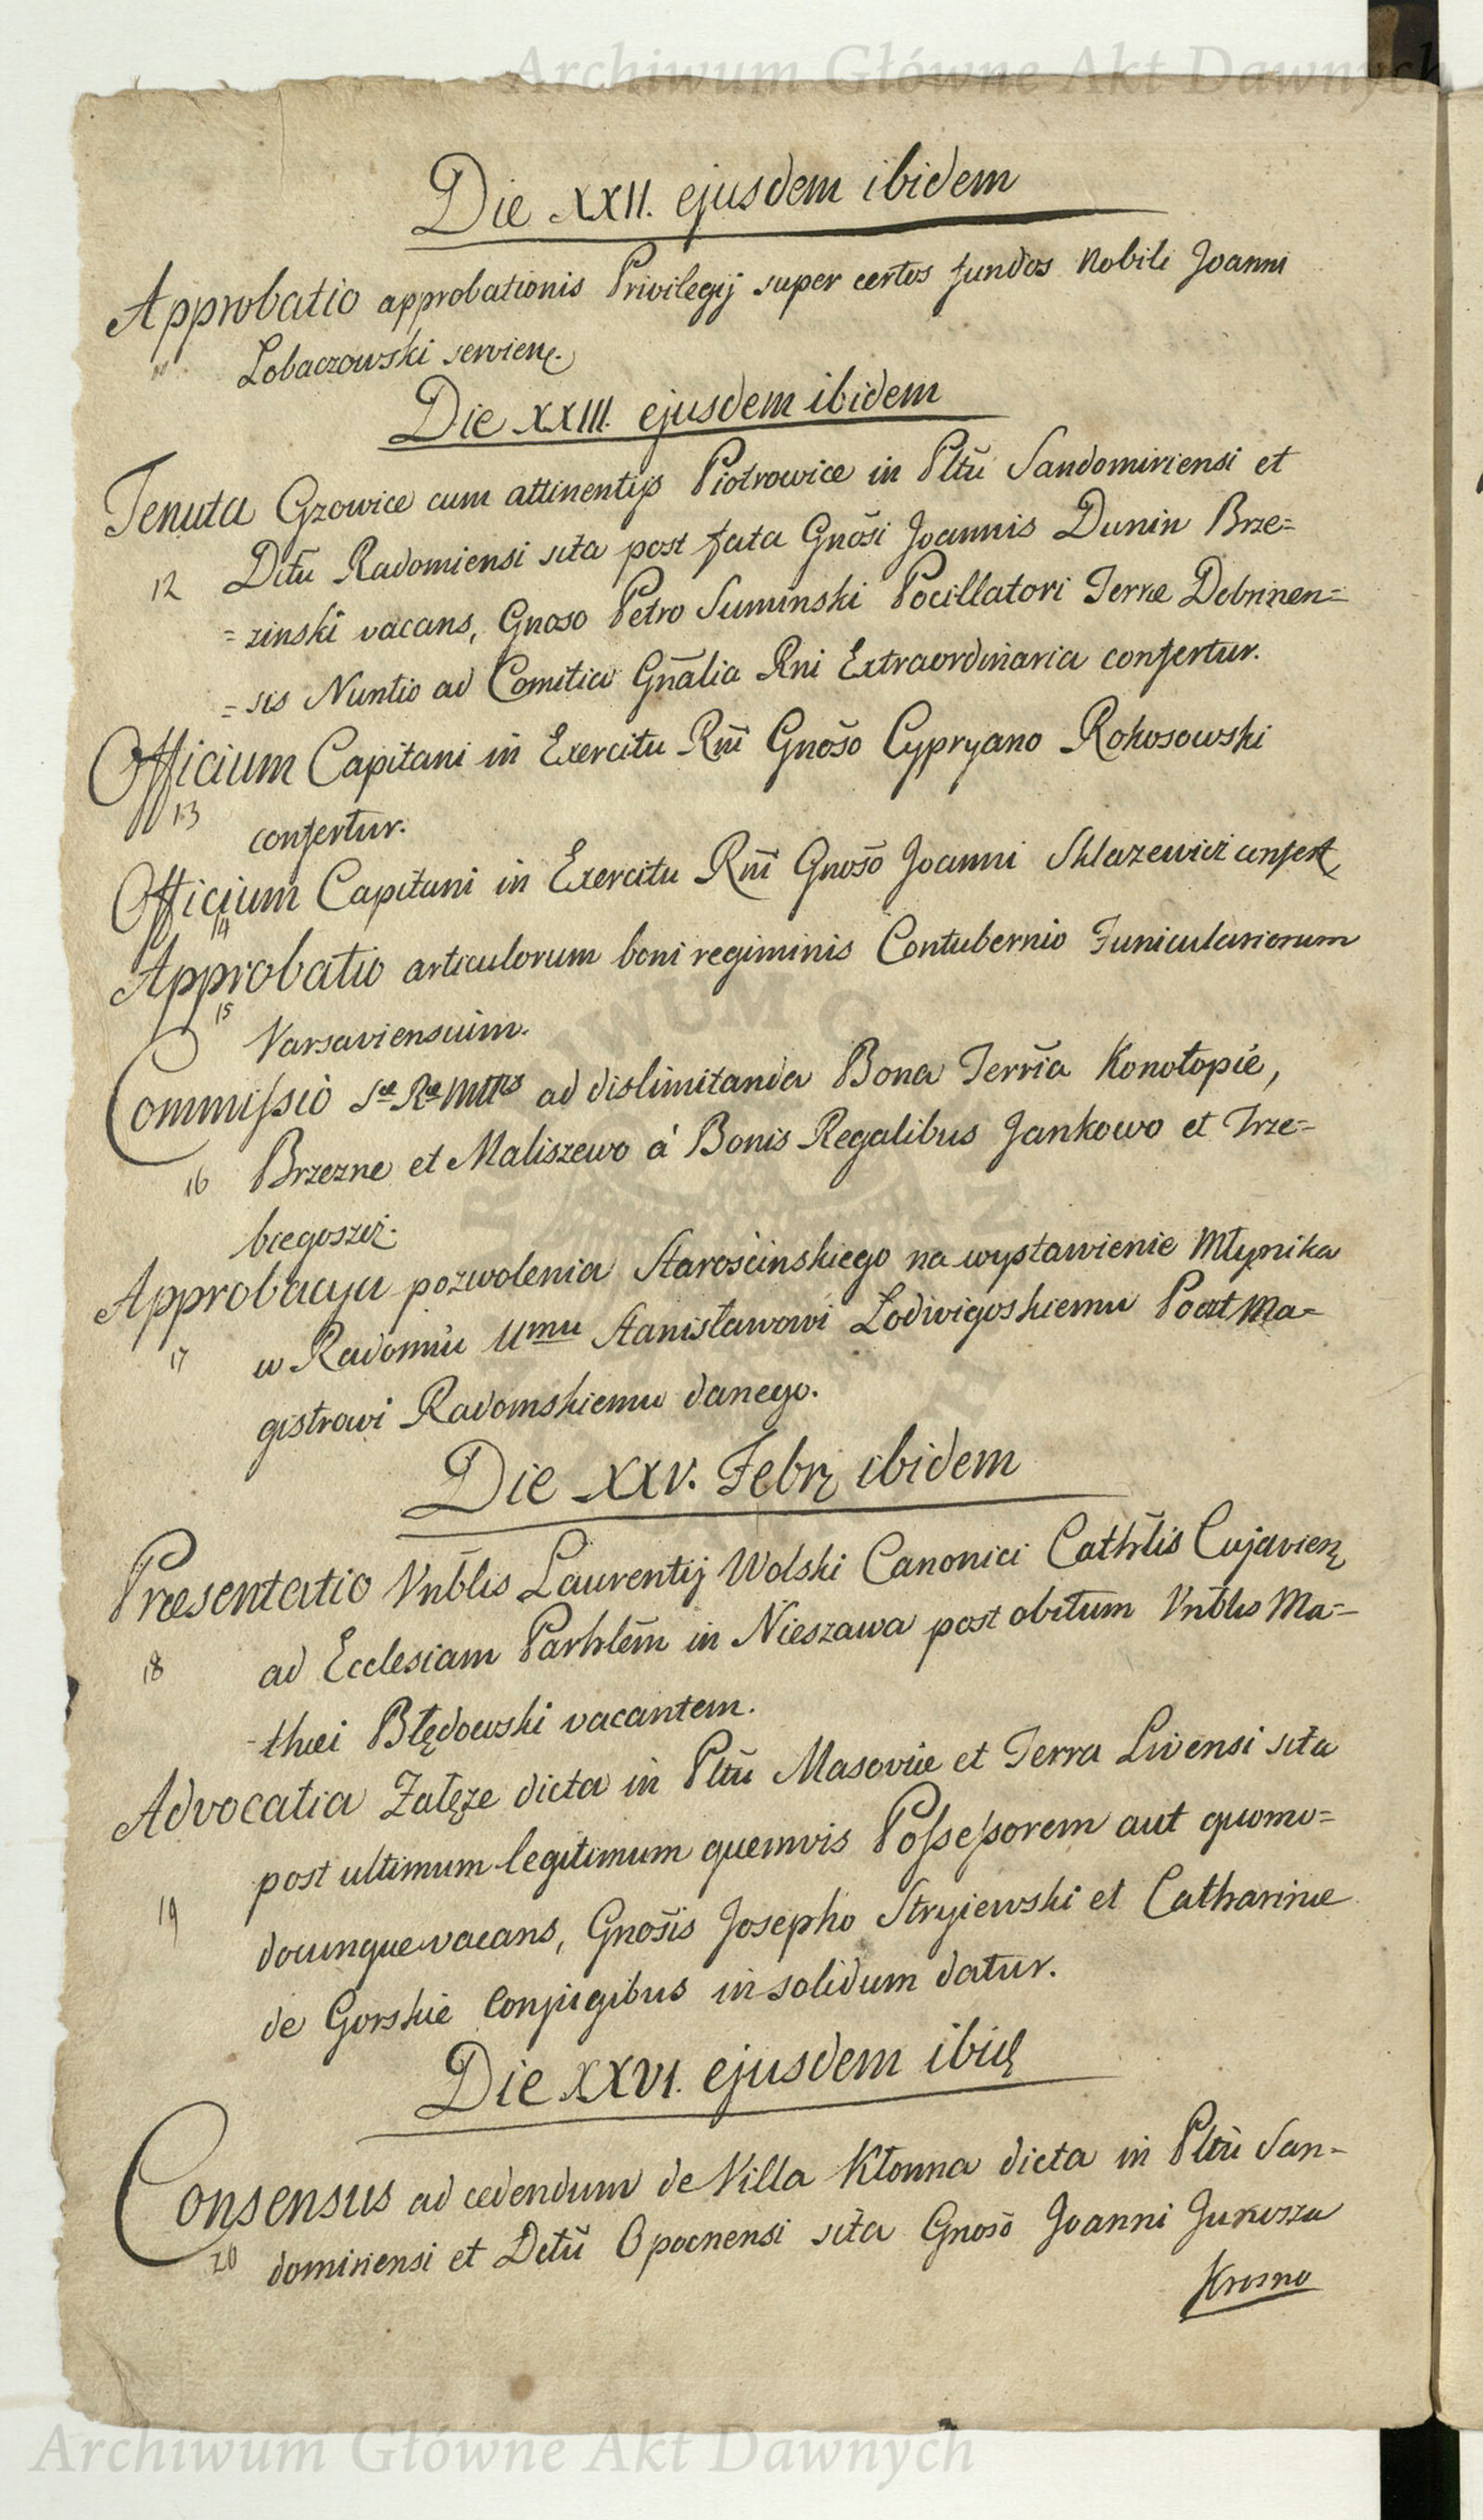 Archiwum Główne Akt Dawnych
Die XXII. ejusdem ibidem
Approbatio approbationis Privilegij super certos fundos Nobili Joanni
11 Lobaczowski servien.
Die XXIII. ejusdem ibidem
Tenuta Gzowice cum attinentijs Piotrowice in Pltũ Sandomiriensi et
12 Dĩtu Radomiensi sita post fata Gnõsi Joannis Dunin Brze=
=zinski vacans, Gnoso Petro Suminski Pocillatori Terræ Dobrinen=
=sis Nuntio ad Comitia Gñalia Rni Extraordinaria confertur.
Officium Capitani in Exercitu Rñi Gnõso Cypryano Rokosowski
13 confertur.
Officium Capitani in Exercitu Rñi Gnõso Joanni Sklazewicz confert,
14
Approbatio articulorum boni regiminis Contubernio Funiculariorum
15 Varsaviensium.
Commissio Sæ Ræ Mttis ad dislimitanda Bona Terrĩa Konotopie,
16 Brzezne et Maliszewo à Bonis Regalibus Jankowo et Trze=
biegoszcz.
Approbacya pozwolenia Starościnskiego na wystawienie Młynika
17 w Radomiu Umu Stanisławowi Lodwigoskiemu Poczt Ma=
gistrowi Radomskiemu danego.
Die XXV. Febr. ibidem
Præsentatio Vnblis Laurentij Wolski Canonici Cathrlis Cujavien.
18 ad Ecclesiam Parhlem in Nieszawa post obitum Vnblis Ma=
-thæi Błędowski vacantem.
Advocatia Załęze dicta in Pltũ Masoviæ et Terra Livensi sita
post ultimum legitimum quemvis Possessorem aut quomo=
19 documque vacans, Gnõsis Josepho Stryiewski et Catharinæ
de Gorskie Conjugibus in solidum datur.
Die XXVI. ejusdem ibid.
Consensus ad cedendum de Villa Kłonna dicta in Pltũ San=
20 domiriensi et Dctũ Opocnensi sita Gnosõ Joanni Junosza
Krosno
Archiwum Główne Akt Dawnych